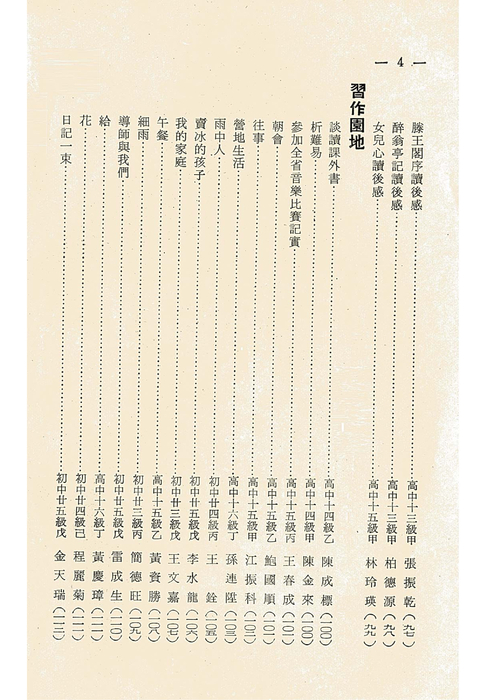 — 4 —
滕王閣序讀後感……高中十三級甲 張振乾(九七)
醉翁亭記讀後感……高中十三級甲 柏德源(九八)
女兒心讀後感……高中十五級甲 林玲瑛(九九)
習作園地
談讀課外書……高中十四級乙 陳成標(一〇〇)
析難易……高中十四級甲 陳金來(一〇〇)
參加全省音樂比賽記實……高中十五級丙 王春成(一〇一)
朝會……高中十五級乙 鮑國順(一〇二)
往事……高中十五級甲 江振科(一〇三)
營地生活……高中十六級丁 孫連陞(一〇三)
雨中人……初中廿四級丙 王銓(一〇五)
賣冰的孩子……初中廿五級戊 李水龍(一〇六)
我的家庭……初中廿三級戊 王文嘉(一〇七)
午餐……高中十五級乙 黃資勝(一〇八)
細雨……初中廿三級丙 簡德旺(一〇九)
導師與我們……初中廿五級戊 雷成生(一一〇)
給……高中十六級丁 黃慶璋(一一一)
花……初中廿四級己 程麗菊(一一二)
日記一束……初中廿五級戊 金天瑞(一一三)